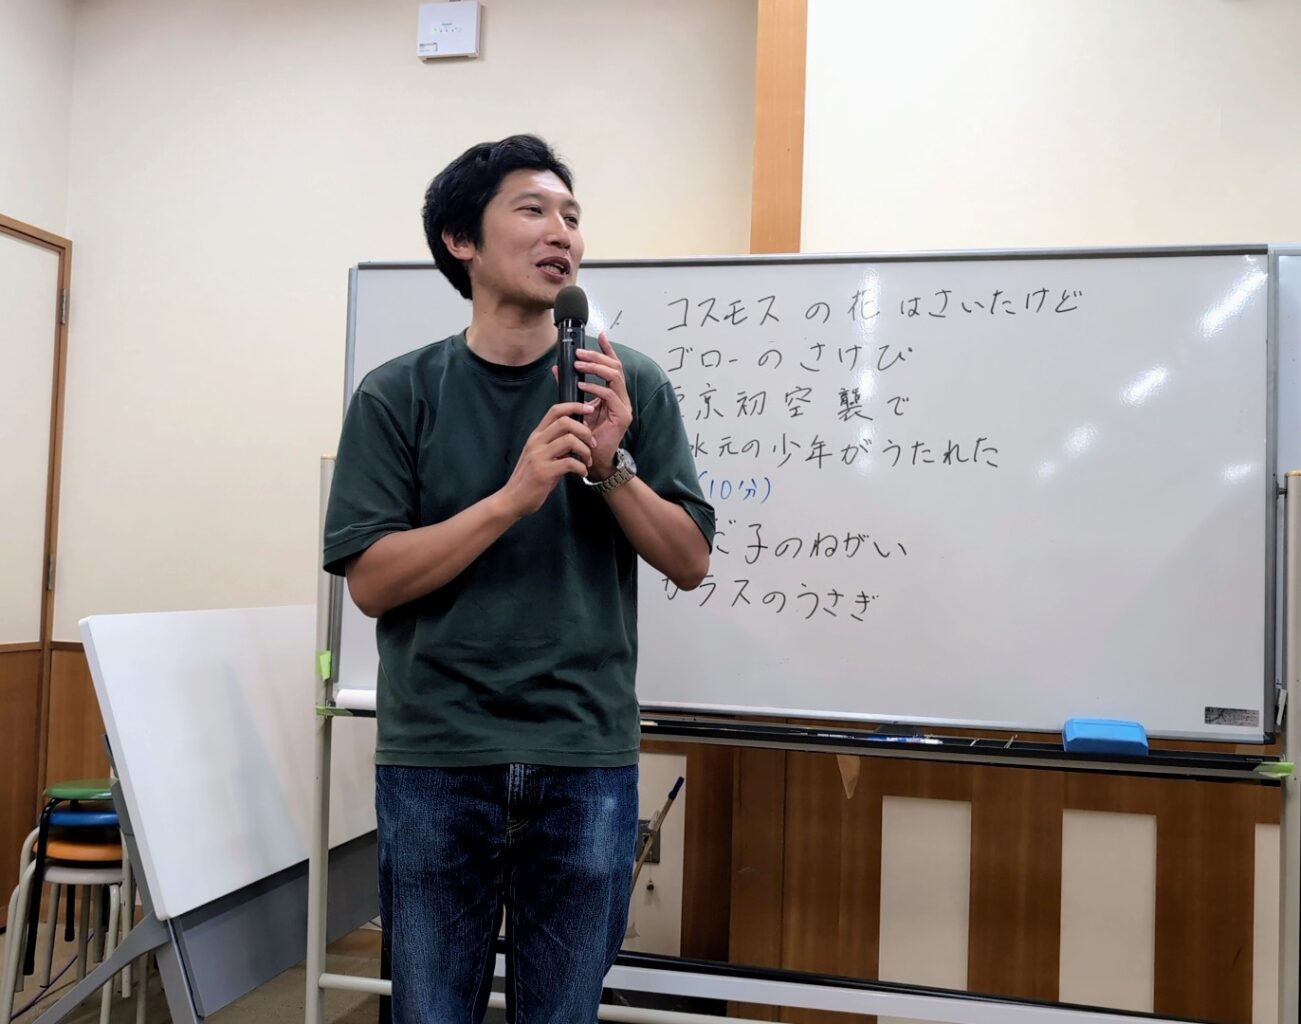 コスモスの花はさいたけど
ゴローのさけび
京初空襲で
水元の少年がうたれた
(10分)
だ子のねがい
ガラスのうさぎ